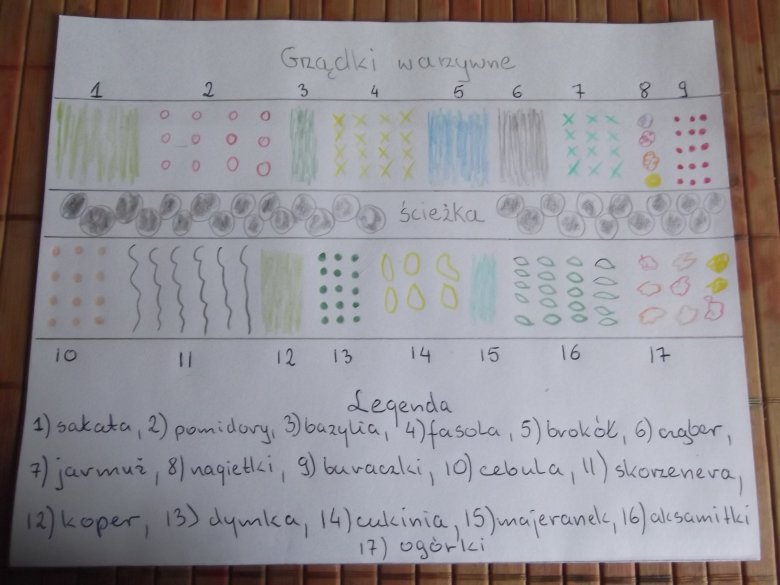 Grządki warzywne
1 2 3 4 5 6 7 8 9
ścieżka
10 11 12 13 14 15 16 17
Legenda
1) sałata, 2) pomidory, 3) bazylia, 4) fasola, 5) brokół, 6) cząber,
7) jarmuż, 8) nagietki, 9) buraczki, 10) cebula, 11) skorzenera,
12) koper, 13) dymka, 14) cukinia, 15) majeranek, 16) aksamitki
17) ogórki